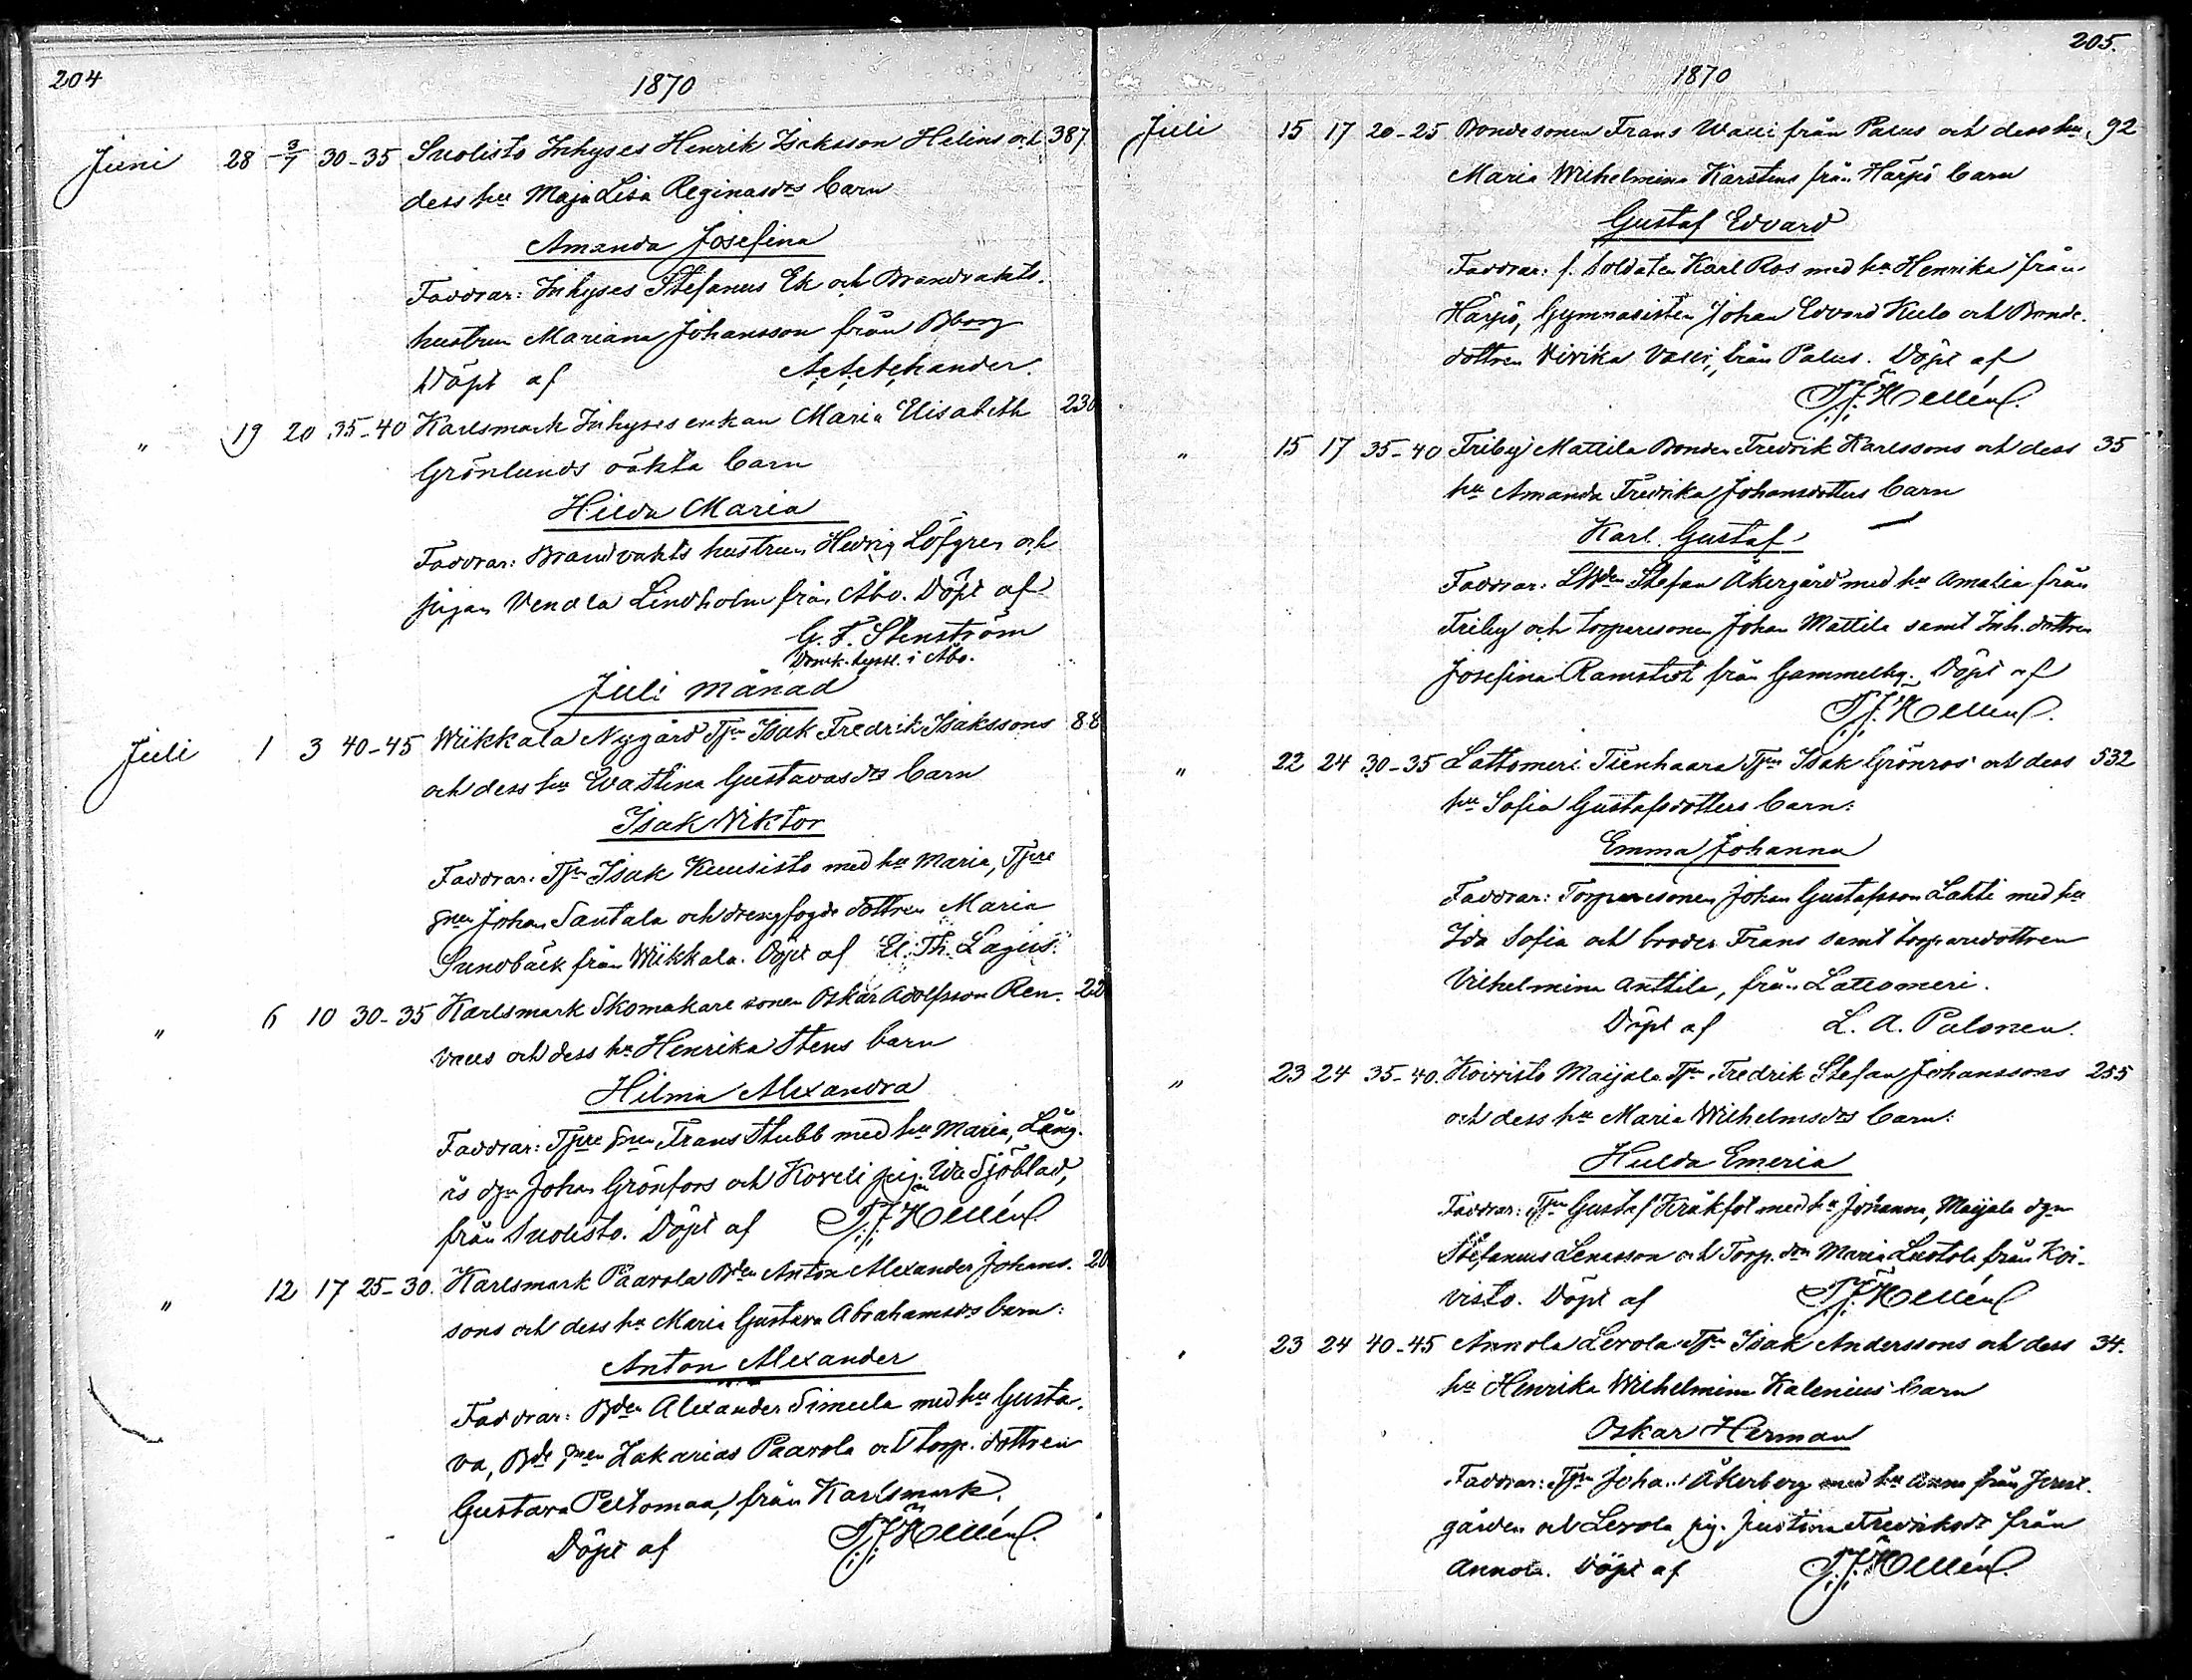 204
1870
Juni 28 3/7 30-35 Suolisto Inhyses Henrik Isaksson Helins och 387
dess hu Maja Lisa Reginasdrs barn
Amanda Josefina
Faddrar: Inhyses Stefanus Ek och Brandvakts-
hustrun Mariana Johansson från Bborg
Döpt af
" 19 20 35-40 Karlsmark Inhyses enkan Maria Elisabeth 230
Grönlunds oäkta barn
Hilda Maria
Faddrar: Brandvakts hustrun Hedvig Löfgren och
pigan Vendla Lindholm från Åbo. Döpt af
G. F. Stenström
i Åbo.
Juli månad
Juli 1 3 40-45 Wiikkala Nygård Tjn Isak Fredrik Isakssons 88
och dess hu Eva Stina Gustavasdrs barn
Isak Viktor
Faddrar: Tjn Isak Kuusisto med hu Maria, Tjre
snen Johan Santala och drengfogde dottren Maria
Sundbäck från Wiikkala. Döpt af El. Th. Lagus.
" 6 10 30-35 Karlsmark Skomakare sonen Oskar Adolfsson Ren- 22
valls och dess hu Henrika Stens barn
Hilma Alexandra
Faddrar: Tjre snen Frans Stubb med hu Maria, Lång-
ås dgn Johan Grönfors och Koveli pig. Ida Sjöblad,
från Suolisto. Döpt af T. J. Hellén.
" 12 17 25-30. Karlsmark Paavola Bden Anton Alexander Johans- 20
sons och dess hu Maria Gustava Abrahamsdrs barn:
Anton Alexander
Faddrar: Bden Alexander Simula med hu Gusta-
va, Bde snen Zakarias Paavola och torp. dottren
Gustava Peltomaa, från Karlsmark.
Döpt af T. J. Hellén.
205.
1870
Juli 15 17 20-25 Bondesonen Frans Walli från Palus och dess hu 92
Maria Wilhelmina Karstens från Harjs barn
Gustaf Edvard
Faddrar: f. Soldaten Karl Ros med hu Henrika från
Härpö, Gymnasisten Johan Edvard Kulo och Bonde-
dottren Vivika Valli, från Palus. Döpt af
T. J. Hellén.
" 15 17 35-40 Friby Mattila Bonden Fredrik Karlssons och dess 35
hu Amanda Fredrika Johansdotters barn
Karl Gustaf
Faddrar: Stefan Åkergård med hu Amalia från
Friby och torparesonen Johan Mattila samt Inh. dottren
Josefina Ramstedt från Gammelby. Döpt af
T. J. Hellén.
" 22 24 30-35 Lattomeri Tienhaara Tjn Isak Grönros' och dess 532
hu Sofia Gustafsdotters barn:
Emma Johanna
Faddrar: Torparesonen Johan Gustafsson Lahti med hu
Ida Sofia och broder Frans samt torparedottren
Vilhelmina Anttila, från Lattomeri.
Döpt af L. A. Palonen.
" 23 24 35-40. Koivisto Maijala Tjn Fredrik Stefan Johanssons 255
och dess hu Maria Wilhelmsdrs barn:
Hulda Emeria
Faddrar: Tjn Gustaf Kråkfot med hu Johanna, Maijala dgn
Stefanus Lenasson och Torp. drn Maria Lustola från Koi-
visto. Döpt af T. J. Hellén
" 23 24 40-45 Annola Levola Tjn Isak Anderssons och dess 34.
hu Henrika Wilhelmina Kalenius' barn
Oskar Herman
Faddrar: Tjn Johan Åkerberg med hu Anna från
gården och Levola pig. Justina Fredriksdr från
Annola. Döpt af T. J. Hellén.